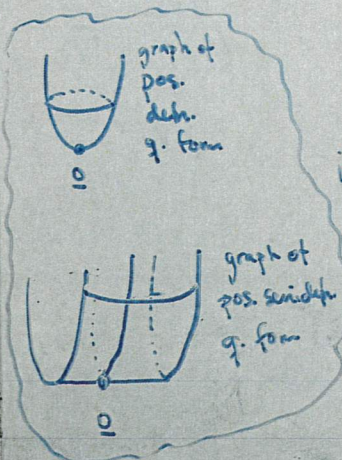 graph of
pos.
defn.
q. form
0
graph of
pos. semidefn.
q. form
0